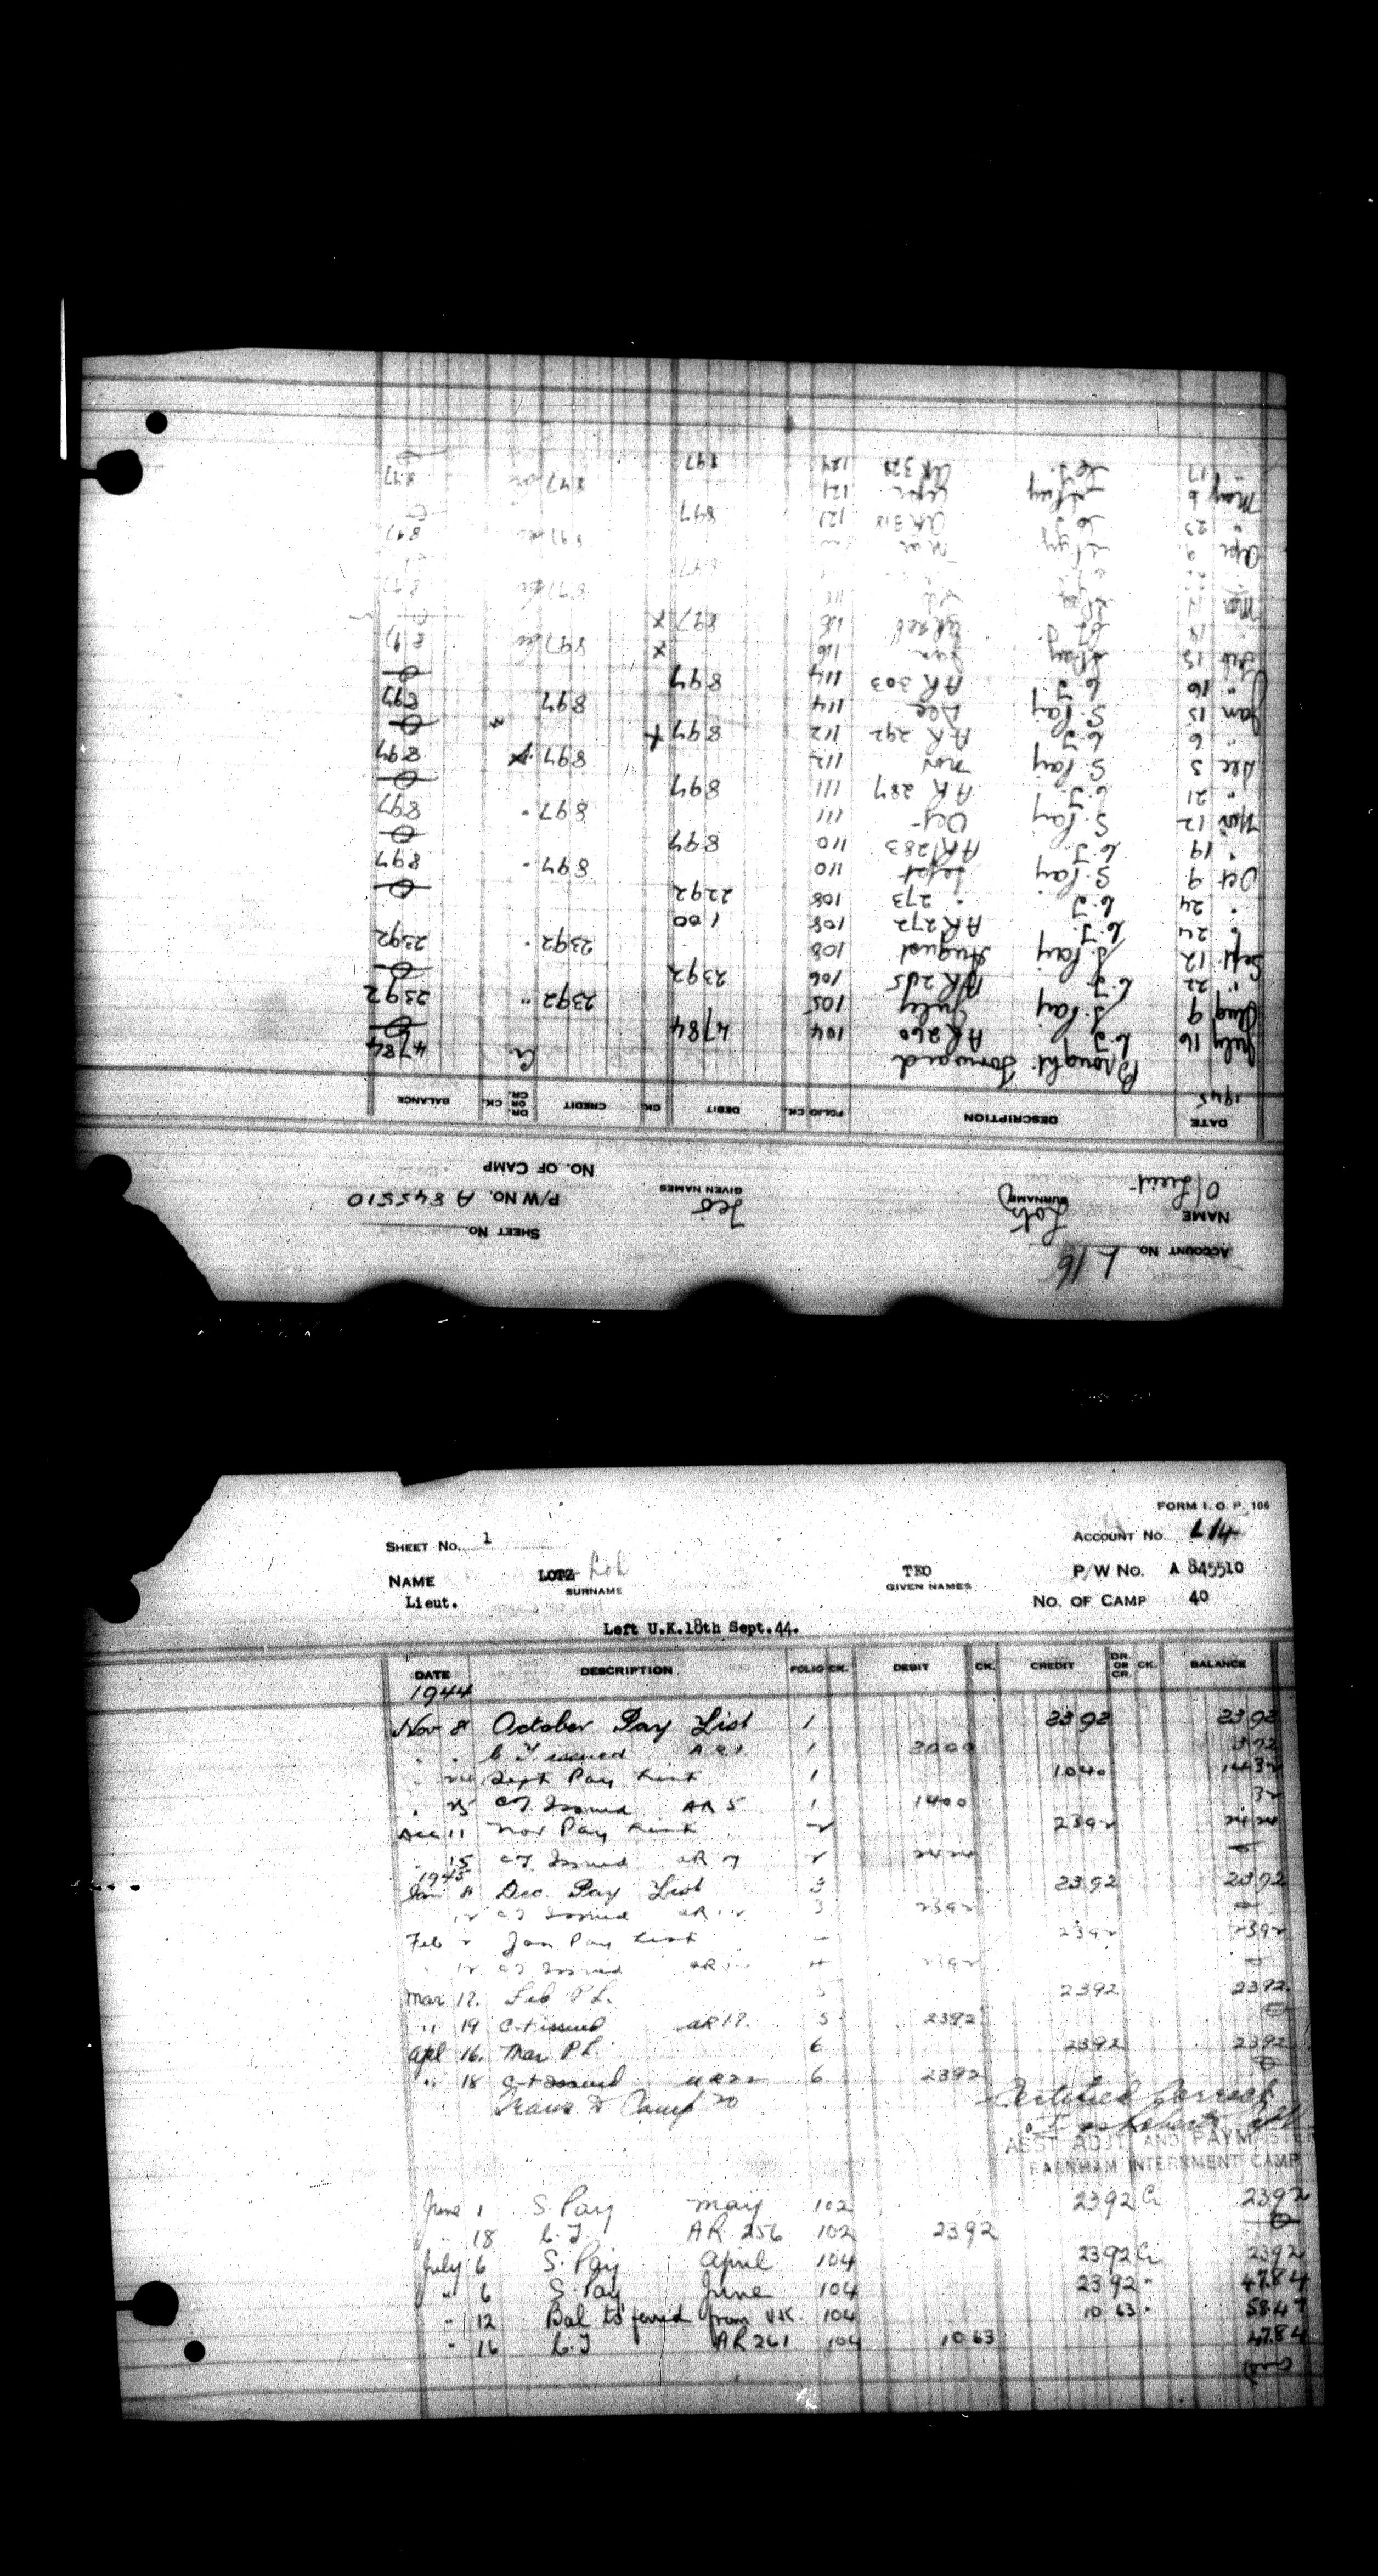 ACCOUNT NO. L 16
SHEET NO.
NAME Lotz SURNAME Teo GIVEN NAMES P/W NO. A 845510
O/Lieut NO. OF CAMP
DATE DESCRIPTION FOLIO CK. DEBIT CK. CREDIT DR. OR CR. CK. BALANCE
1945
Brought Forward Cr 4784
July 16 C.T. AR 260 104 4784 0
Aug 9 S. Pay July 105 2392 " 2392
" 22 C.T. AR 265 106 2392 0
Sept 12 S. Pay August 108 2392 " 2392
" 24 C.T. AR 272 108 100
" 24 C.T. " 273 108 2292 0
Oct 9 S. Pay Sept 110 897 " 897
" 19 C.T. AR 283 110 897 0
Nov 12 S. Pay Oct 111 897 " 897
" 21 C.T. AR 287 111 897 0
Dec 3 S. Pay Nov 112 897 897
" 6 C.T. AR 292 112 897 0
Jan 15 S. Pay Dec 114 897 897
" 16 C.T. AR 303 114 897 0
Feb 15 S Pay Jan 116 897 897
" 18 C.T. 116 897
Mar 14 118 897 897
" 22 897
Apr 9 S Pay Mar 897 897
" 23 C.T. AR 318 121 897
May 6 S Pay Apr 124 897 897
" 17 C.T. AR 328 124 897
FORM I. O. P. 106
SHEET NO. 1 ACCOUNT NO. L 14
NAME LOTZ SURNAME TEO GIVEN NAMES P/W NO. A 845510
Lieut. NO. OF CAMP 40
Left U.K.18th Sept.44.
DATE DESCRIPTION FOLIO CK. DEBIT CK. CREDIT DR. OR CR. CK. BALANCE
1944
Nov 8 October Pay List 1 2392 2392
" " C.T. issued AR 1 1 2000 392
" 24 Sept Pay List 1 1040 1432
" 25 CT Issued AR 5 1 1400 32
Dec 11 Nov Pay List 2 2392 2424
" 15 CT Issued AR 7 2 2424 0
1945
Jan 8 Dec. Pay List 3 2392 2392
" 12 CT Issued AR 12 3 2392 0
Feb 2 Jan Pay List 2392 2392
" 12 CT Issued AR 4 2392 0
Mar 12. Feb P L. 5 2392 2392
" 19 C-t issued AR 18. 5 2392 0
Apl 16. Mar P L. 6 2392 2392
" 18 C-t issued AR 22 6 2392 0
Trans to Camp 20 Certified Correct
ASST ADJT AND PAYMASTER
FARNHAM INTERNMENT CAMP
June 1 S Pay May 102 2392 Cr 2392
" 18 C.T. AR 256 102 2392 0
July 6 S. Pay April 104 2392 Cr 2392
" 6 S. Pay June 104 2392 " 4784
" 12 Bal ts'ferred from U.K. 104 10 63 " 5847
" 16 C.T AR 261 104 10 63 4784